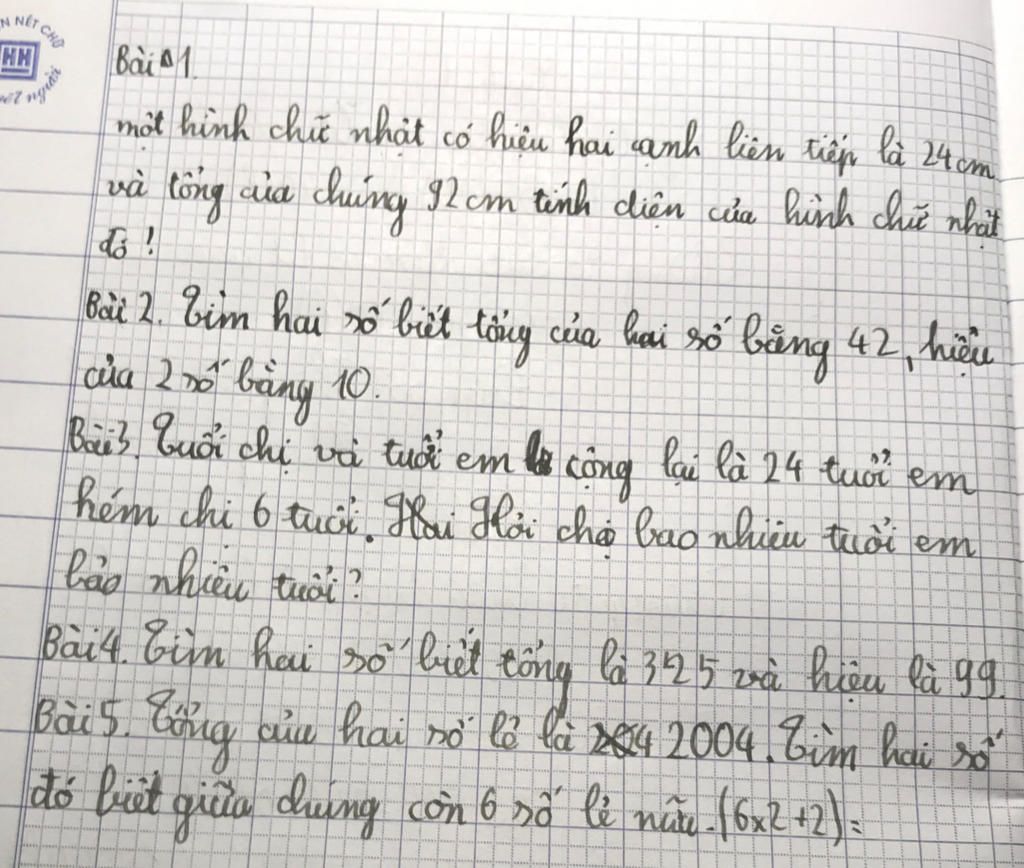 N NÉT CHỮ
HH
nết người
Bài 1.
một hình chữ nhật có hiệu hai cạnh liên tiếp là 24cm
và tổng của chúng 92cm tính diện của hình chữ nhật
đó!
Bài 2. Tìm hai số biết tổng của hai số bằng 42, hiệu
của 2 số bằng 10.
Bài 3. Tuổi chị và tuổi em cộng lại là 24 tuổi em
hém chi 6 tuổi. Hỏi chị bao nhiêu tuổi em
bao nhiêu tuổi?
Bài 4. Tìm hai số biết tổng là 325 và hiệu là 99.
Bài 5. Tổng của hai số lẻ là 2004. Tìm hai số
đó biết giữa chúng còn 6 số lẻ nữa. (6x2+2)=